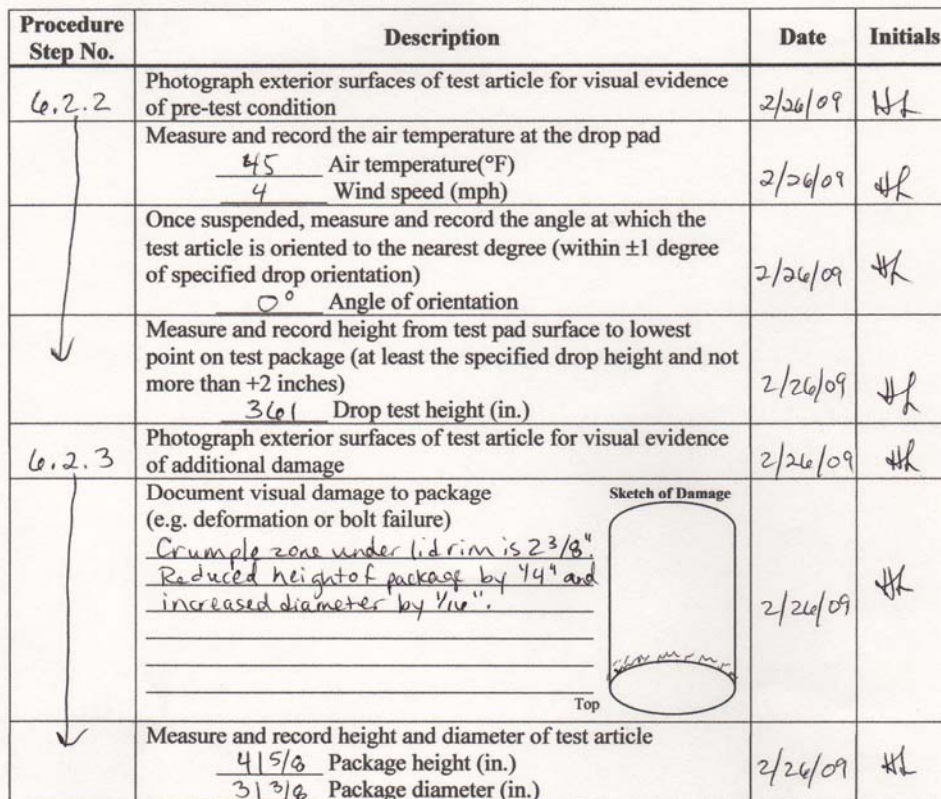 Procedure Step No. Description Date Initials
6.2.2 Photograph exterior surfaces of test article for visual evidence
of pre-test condition 2/26/09 HL
Measure and record the air temperature at the drop pad
45 Air temperature(°F)
4 Wind speed (mph) 2/26/09 HL
Once suspended, measure and record the angle at which the
test article is oriented to the nearest degree (within ±1 degree
of specified drop orientation) 2/26/09 HL
0° Angle of orientation
Measure and record height from test pad surface to lowest
point on test package (at least the specified drop height and not
more than +2 inches) 2/26/09 HL
361 Drop test height (in.)
6.2.3 Photograph exterior surfaces of test article for visual evidence
of additional damage 2/26/09 HL
Document visual damage to package Sketch of Damage
(e.g. deformation or bolt failure)
Crumple zone under lid rim is 2 3/8".
Reduced height of package by 1/4" and
increased diameter by 1/16". 2/26/09 HL
Top
Measure and record height and diameter of test article
41 5/8 Package height (in.) 2/26/09 HL
31 3/8 Package diameter (in.)